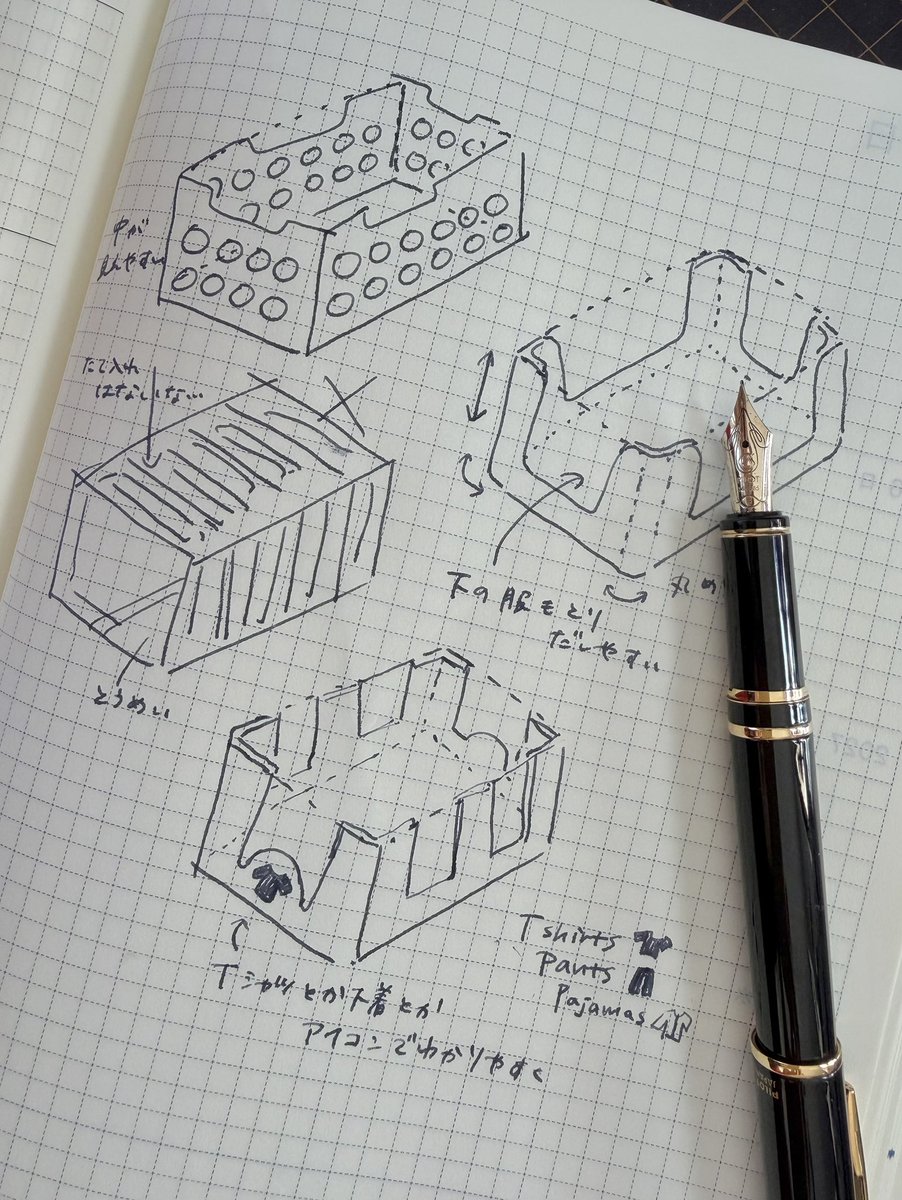 中が
見やすい
たて入れ
はなしいな...
とうめい
下の服もとり
だしやすい
丸め
Tシャツとか下着とか
アイコンでわかりやすく
T shirts
Pants
Pajamas
PILOT
JAPAN